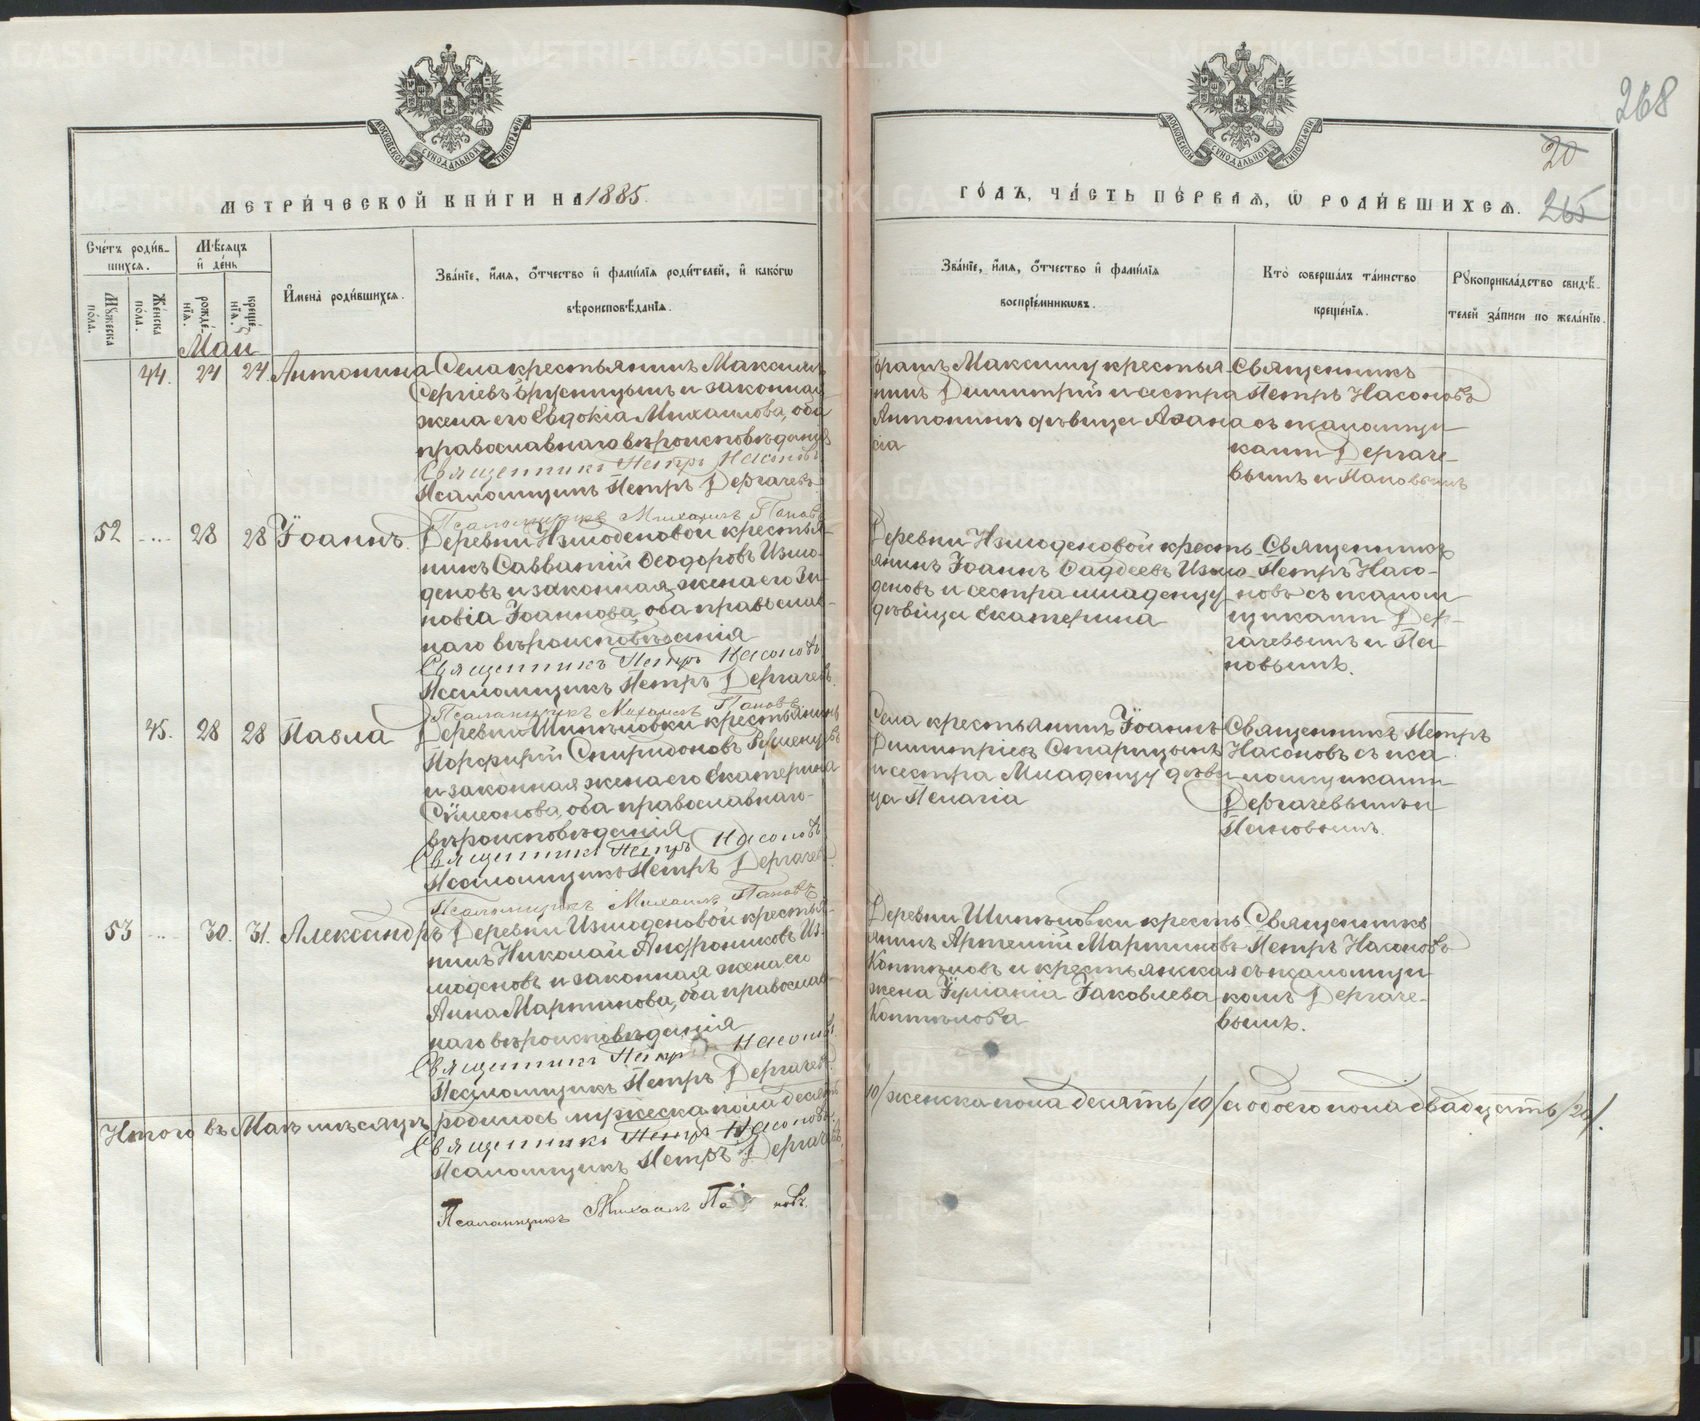 268
20
265
МОСКОВСКОЙ СѴНОДАЛЬНОЙ ТИПОГРАФІИ
МОСКОВСКОЙ СѴНОДАЛЬНОЙ ТИПОГРАФІИ
МЕТРИ́ЧЕСКОЙ КНИ́ГИ НА 1885.
ГО́ДЪ, ЧА́СТЬ ПЕ́РВАѦ, Ѡ҆ РОДИ́ВШИХСѦ.
Сче́тъ роди́вшихсѧ.
Мꙋ́жеска по́ла.
Же́нска по́ла.
Мѣ́сѧцъ и҆ де́нь
рожде́нїѧ.
креще́нїѧ.
И҆мена̀ роди́вшихсѧ.
Зва́нїе, и҆́мѧ, ѻ҆́тчество и҆ фами́лїѧ роди́телей, и҆ како́гѡ
вѣроисповѣ́данїѧ.
Зва́нїе, и҆́мѧ, ѻ҆́тчество и҆ фами́лїѧ
воспрїе́мникѡвъ.
Кто̀ соверша́лъ та́инство
креще́нїѧ.
Рꙋкоприкла́дство свидѣ́-
телей за́писи по жела́нїю.
Маи
44. 24 24. Антонина Села крестьянинъ Максимъ
Сергіевъ Брусницынъ и законная
жена его Евдокія Михаилова, оба
православнаго вѣроисповѣданія
Священникъ Петръ Насоновъ
Псаломщикъ Петръ Дергачевъ
Псаломщикъ Михаилъ Пановъ
братъ Максиму крестья-
нинъ Димитрій и сестра
Антонинѣ дѣвица Афана-
сія
Священникъ
Петръ Насоновъ
съ псаломщи-
ками Дергаче-
вымъ и Пановымъ
52 28 28 Іоаннъ. Деревни Измоденовой крестья-
нинъ Савватій Ѳеодоровъ Измо-
деновъ и законная жена его Зи-
новія Іоаннова, оба православ-
наго вѣроисповѣданія
Священникъ Петръ Насоновъ
Псаломщикъ Петръ Дергачевъ.
Псаломщикъ Михаилъ Пановъ
Деревни Измоденовой кресть-
янинъ Іоаннъ Фаддеевъ Измо-
деновъ и сестра младенцу
дѣвица Екатерина
Священникъ
Петръ Насо-
новъ съ псалом
щиками Дер-
гачевымъ и Па
новымъ.
45. 28 28 Павла Деревни Шипѣловки крестьянинъ
Порфирій Спиридоновъ
и законная жена его Екатерина
Сѵмеонова, оба православнаго
вѣроисповѣданія
Священникъ Петръ Насоновъ
Псаломщикъ Петръ Дергачевъ
Псаломщикъ Михаилъ Пановъ
Села крестьянинъ Іоаннъ
Димитріевъ Старицынъ
и сестра Младенцу дѣви
ца Пелагія
Священникъ Петръ
Насоновъ съ пса
ломщиками
Дергачевымъ и
Пановымъ.
53 30. 31. Александръ Деревни Измоденовой крестья-
нинъ Николай Андрониковъ Из-
моденовъ и законная жена его
Анна Мартинова, оба православ-
наго вѣроисповѣданія
Священникъ Петръ Насоновъ
Псаломщикъ Петръ Дергачевъ
Деревни Шипѣловки кресть
янинъ Артемій Мартиновъ
Коптѣловъ и крестьянская
жена Іуліанія Іаковлева
Коптѣлова
Священникъ
Петръ Насоновъ
съ псаломщи
комъ Дергаче-
вымъ.
Итого въ Маѣ мѣсяцѣ родилось мужеска пола десять /10/ женска пола десять /10/ а обоего пола двадцать /20/.
Священникъ Петръ Насоновъ
Псаломщикъ Петръ Дергачевъ.
Псаломщикъ Михаилъ Пановъ.
METRIKI.GASO-URAL.RU